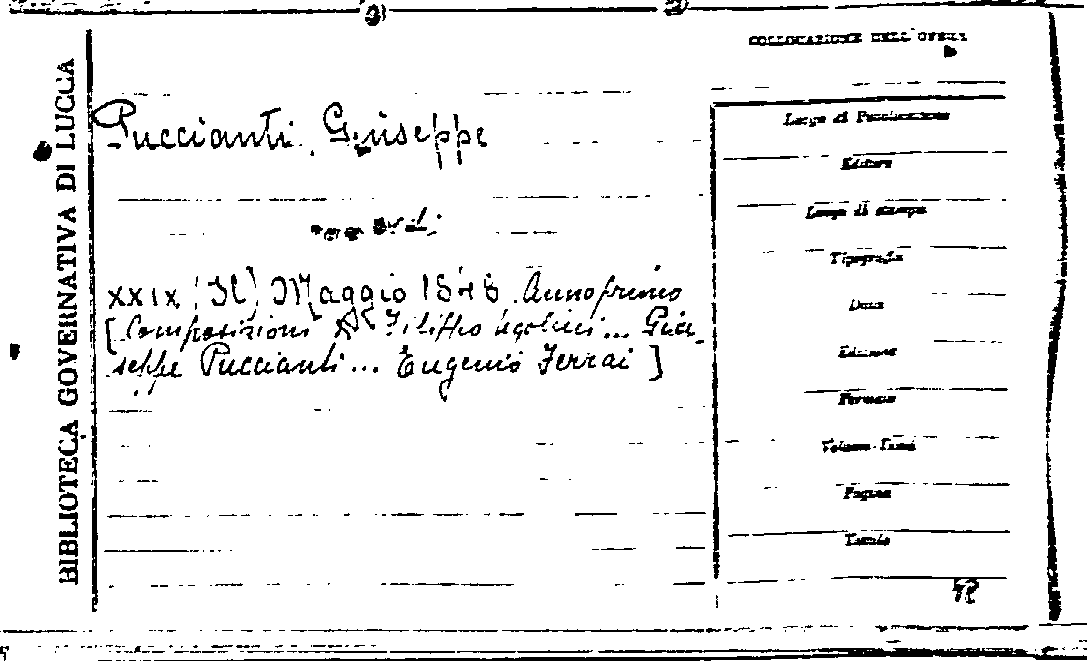 BIBLIOTECA GOVERNATIVA DI LUCCA
COLLOCAZIONE DELL'OPERA
Puccianti Giuseppe
XXIX (Il) Maggio 1848. Anno primo
[Composizioni Filippo Ugolini... Giu-
seppe Puccianti... Eugenio Ferrai]
Luogo di Pubblicazione
Editore
Luogo di stampa
Tipografia
Data
Edizione
Formato
Volume-Tomi
Pagine